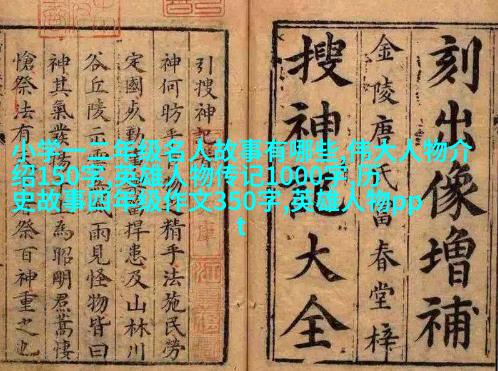 刻出像增補
金陵唐氏富春堂梓
搜神大全
引搜神
神何昉乎物之精乎法施民勞
定國捍患及山林川
谷丘陵示見怪物皆曰
神其氣發為昭明焄蒿悽
愴祭法有祭百神重之也
小学一二年级名人故事有哪些,伟大人物介
绍150字,英雄人物传记1000字,历
史故事四年级作文350字,英雄人物pp
t